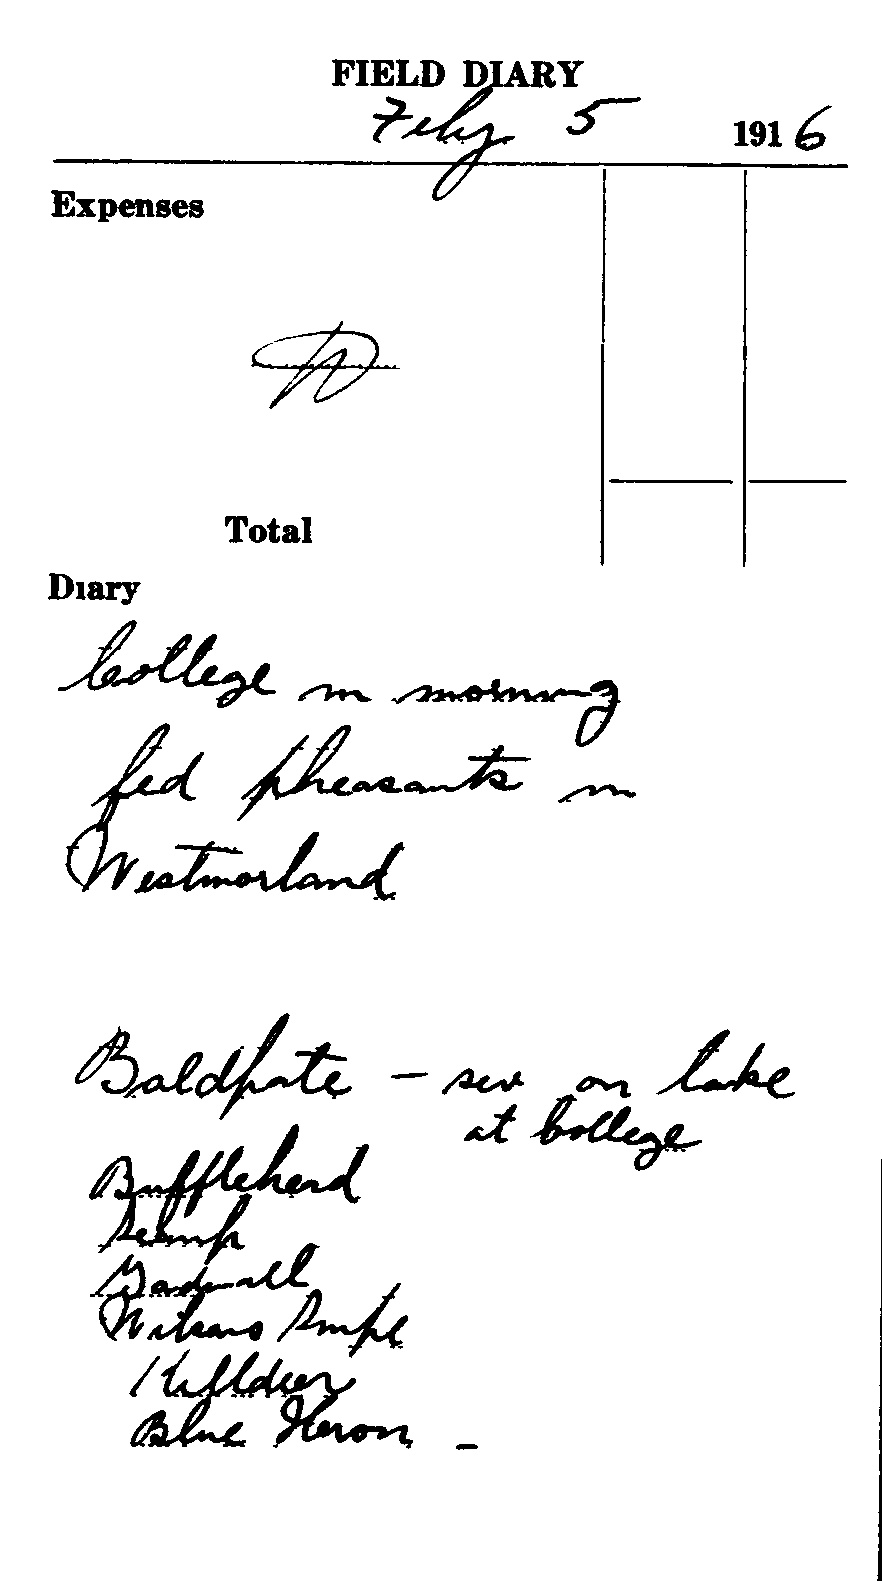 FIELD DIARY
Feby 5 1916
Expenses
Total
Diary
College in morning
fed pheasants in
Westmorland
Baldpate - sev on lake
at College
Bufflehead
Scaup
Gadwall
Wilsons Snipe
Killdeer
Blue Heron -